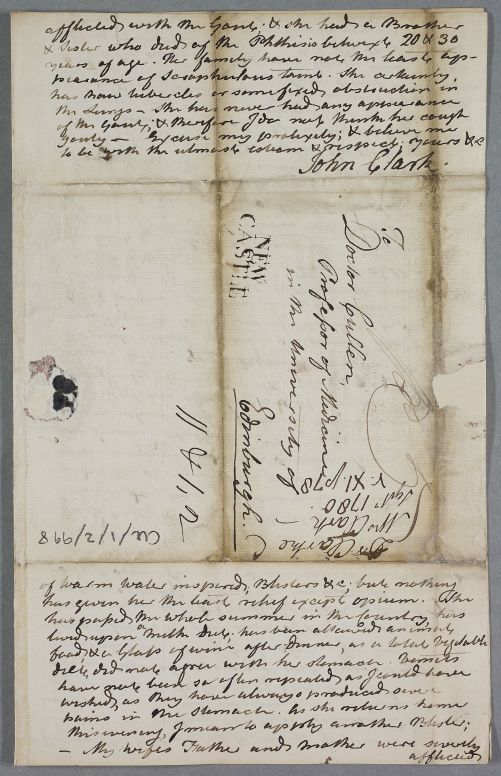 afflicted with the Gout. & she had a Brother
& Sister who died of the Phthisis betwixt 20 & 30
years of age. Her family have not the least ap-
pearance of Scrophulous taint. She certainly,
has now tubercles or some fixed obstruction in
the Lungs. She has never had any appearance
of the Gout; & therefore I do not think her cough
Gouty — Excuse my prolixity; & believe me
to be with the utmost esteem & respect; yours &c
John Clark.
To
Doctor Cullen,
Professor of Medicine
in the University of
Edinburgh.
NEW
CASTLE
Dr Clarke
Mrs Clark
Septr 1780.
V. XI. p 78
CUL/1/2/998
of warm water inspired, Blisters &c; but nothing
has given her the least relief except opium. She
has passed the whole summer in the Country, has
lived upon a Milk diet, has been allowed animal
food & a Glass of wine after Dinner, as a total Vegetable
diet, did not agree with her stomach. Vomits
have not been so often repeated, as I could have
wished, as they have always produced severe
pains in the Stomach. As she returns home
this evening, I mean to apply another Blister;
— My wifes Father and mother were severely
afflicted